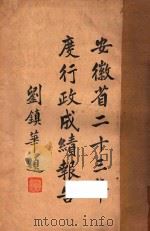 安徽省二十三年
度行政成績報告
劉鎮華題
www.zixin.com.cn